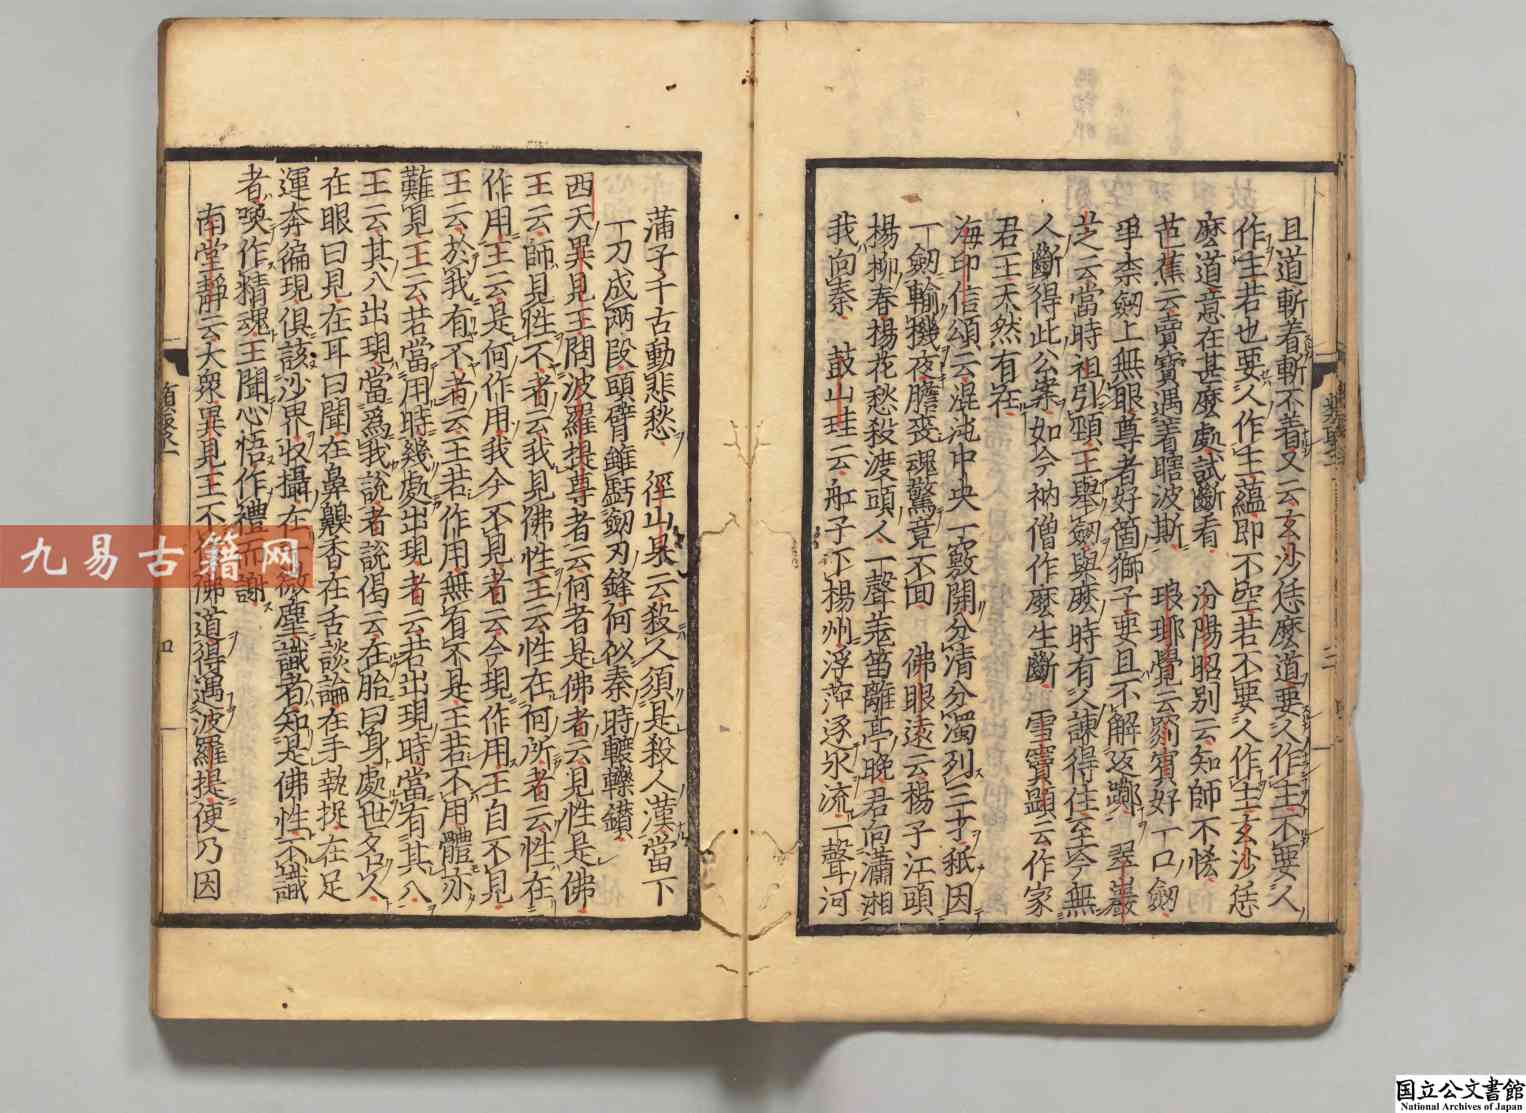 且道斬着斬不着又云玄沙恁麼道要人作主不要人
作主若也要人作主蘊即不空若不要人作主玄沙恁
麼道意在甚麼處試斷看　汾陽昭別云知師不恡
芭蕉云賣寶遇着瞎波斯　瑯琊覺云罽賓好一口劒
爭柰劒上無眼尊者好箇獅子要且不解返擲　翠巖
芝云當時祖引頸王擧劒與麼時有人諫得住至今無
人斷得此公案如今衲僧作麼生斷　雪竇顯云作家
君王天然有在
海印信頌云混沌中央一竅開分清分濁列三才秖因
一劒輪機夜膽喪魂驚竟不回　佛眼遠云楊子江頭
楊柳春楊花愁殺渡頭人一聲羌笛離亭晚君向瀟湘
我向秦　鼓山珪云舡子下楊州浮萍逐水流一聲河
蒲子千古動悲愁　徑山杲云殺人須是殺人漢當下
一刀成兩段頭臂雖虧劒刃鋒何似秦時轆轢鑚
西天異見王問波羅提尊者云何者是佛者云見性是佛
王云師見性不者云我見佛性王云性在何所者云性在
作用王云是何作用我今不見者云今現作用王自不見
王云於我有不者云王若作用無有不是王若不用體亦
難見王云若當用時幾處出現者云若出現時當有其八
王云其八出現當爲我說者說偈云在胎曰身處世名人
在眼曰見在耳曰聞在鼻齅香在舌談論在手執捉在足
運奔徧現俱該沙界收攝在微塵識者知是佛性不識
者喚作精魂王聞心悟作禮而謝
南堂靜云大衆異見王不佛道得遇波羅提便乃因
四
九易古籍网
国立公文書館
National Archives of Japan